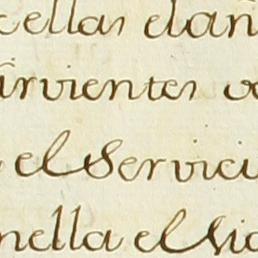 cellas elan
irvientes o
el Servici
nella el Vi